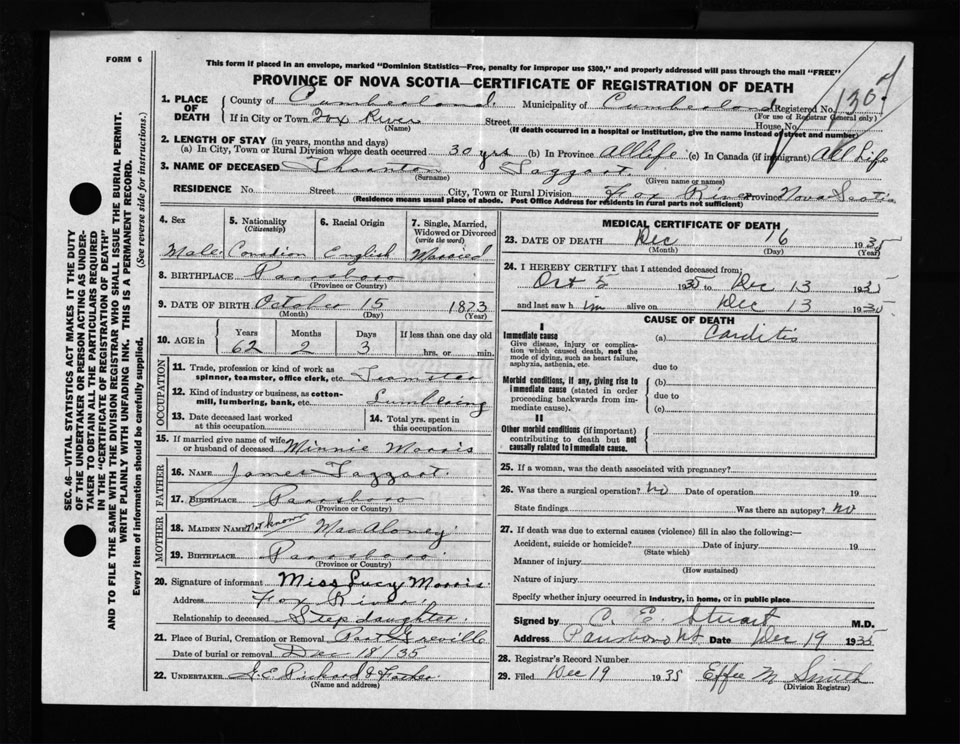 FORM 6
This form if placed in an envelope, marked "Dominion Statistics—Free, penalty for improper use $300," and properly addressed will pass through the mail "FREE"
PROVINCE OF NOVA SCOTIA—CERTIFICATE OF REGISTRATION OF DEATH
1. PLACE OF DEATH
County of Cumberland Municipality of Cumberland Registered No. 1307
(For use of Registrar General only)
If in City or Town Fox River Street House No.
(Name) (If death occurred in a hospital or institution, give the name instead of street and number)
2. LENGTH OF STAY (in years, months and days)
(a) In City, Town or Rural Division where death occurred 30 yrs (b) In Province All life (c) In Canada (if immigrant) All Life
3. NAME OF DECEASED Thornton Taggart
(Surname) (Given name or names)
RESIDENCE No. Street City, Town or Rural Division Fox River Province Nova Scotia
(Residence means usual place of abode. Post Office Address for residents in rural parts not sufficient)
4. Sex Male
5. Nationality (Citizenship) Canadian
6. Racial Origin English
7. Single, Married, Widowed or Divorced (write the word) Married
8. BIRTHPLACE Parrsboro
(Province or Country)
9. DATE OF BIRTH October 15 1873
(Month) (Day) (Year)
10. AGE in Years 62 Months 2 Days 3 If less than one day old hrs. or min.
OCCUPATION
11. Trade, profession or kind of work as spinner, teamster, office clerk, etc. Teamster
12. Kind of industry or business, as cotton-mill, lumbering, bank, etc. Lumbering
13. Date deceased last worked at this occupation
14. Total yrs. spent in this occupation
15. If married give name of wife or husband of deceased Minnie Morris
FATHER
16. NAME James Taggart
17. BIRTHPLACE Parrsboro
(Province or Country)
MOTHER
18. MAIDEN NAME Not known MacAloney
19. BIRTHPLACE Parrsboro
(Province or Country)
20. Signature of informant Miss Lucy Morris
Address Fox River
Relationship to deceased Step daughter
21. Place of Burial, Cremation or Removal Port Greville
Date of burial or removal Dec 18/35
22. UNDERTAKER
(Name and address)
MEDICAL CERTIFICATE OF DEATH
23. DATE OF DEATH Dec 16 1935
(Month) (Day) (Year)
24. I HEREBY CERTIFY that I attended deceased from:
Oct 5 1935 to Dec 13 1935
and last saw him alive on Dec 13 1935
CAUSE OF DEATH
I
Immediate cause
Give disease, injury or complication which caused death, not the mode of dying, such as heart failure, asphyxia, asthenia, etc.
(a) Carditis
due to
Morbid conditions, if any, giving rise to immediate cause (stated in order proceeding backwards from immediate cause).
(b)
due to
(c)
II
Other morbid conditions (if important) contributing to death but not causally related to immediate cause.
25. If a woman, was the death associated with pregnancy?
26. Was there a surgical operation? No Date of operation 19
State findings Was there an autopsy? No
27. If death was due to external causes (violence) fill in also the following:—
Accident, suicide or homicide? Date of injury 19
(State which)
Manner of injury
(How sustained)
Nature of injury
Specify whether injury occurred in industry, in home, or in public place
Signed by C. E. Stuart M.D.
Address Parrsboro NS Date Dec 19 1935
28. Registrar's Record Number
29. Filed Dec 19 1935 Effie M Smith
(Division Registrar)
SEC. 46—VITAL STATISTICS ACT MAKES IT THE DUTY
OF THE UNDERTAKER OR PERSON ACTING AS UNDER-
TAKER TO OBTAIN ALL THE PARTICULARS REQUIRED
IN THE "CERTIFICATE OF REGISTRATION OF DEATH"
AND TO FILE THE SAME WITH THE DIVISION REGISTRAR WHO SHALL ISSUE THE BURIAL PERMIT.
WRITE PLAINLY WITH UNFADING INK. THIS IS A PERMANENT RECORD.
Every item of information should be carefully supplied. (See reverse side for instructions.)